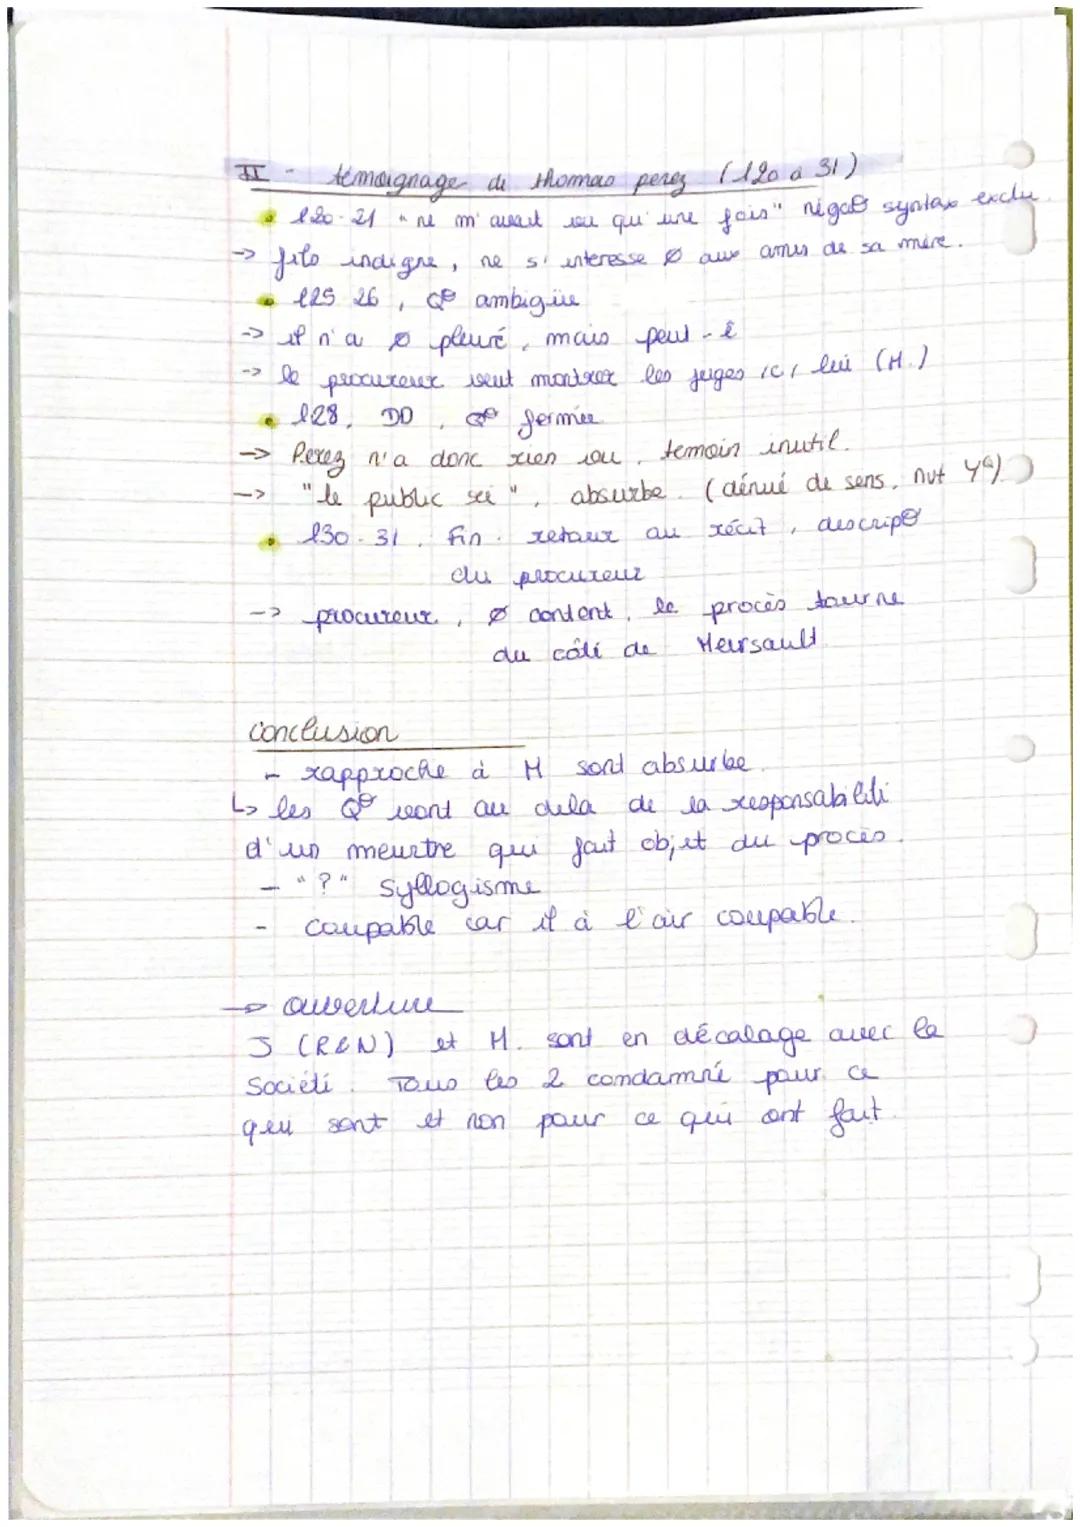 II - témoignage de thomas perez (l20 a 31)
• l20-21 "ne m'avait vu qu'une fois" négaº syntax exclu.
-> fils indigne, ne s'interesse ø aux amis de sa mère.
• l25 26, Qº ambigüe
-> il n'a ø pleuré, mais peut-ê
-> le procureur veut montrer les juges ici lui (M.)
• l28, DD, Qº fermée
-> Perez n'a donc rien vu, temoin inutil.
-> "le public rei", absurbe. (dénué de sens,
• l30-31. Fin. retour au récit, descripº
du procureur
-> procureur, ø content, le procès tourne
du côté de Meursault.
Conclusion
- rapproche à M sont absurbe.
↳ les Qº vont au dela de la responsabilité
d'un meurtre qui fait objet du procès.
- "?" syllogisme
- coupable car il à l'air coupable.
-> ouverture
J (R&N) et M. sont en décalage avec la
Société. Tous les 2 condamné pour ce
qui sont et non pour ce qui ont fait.